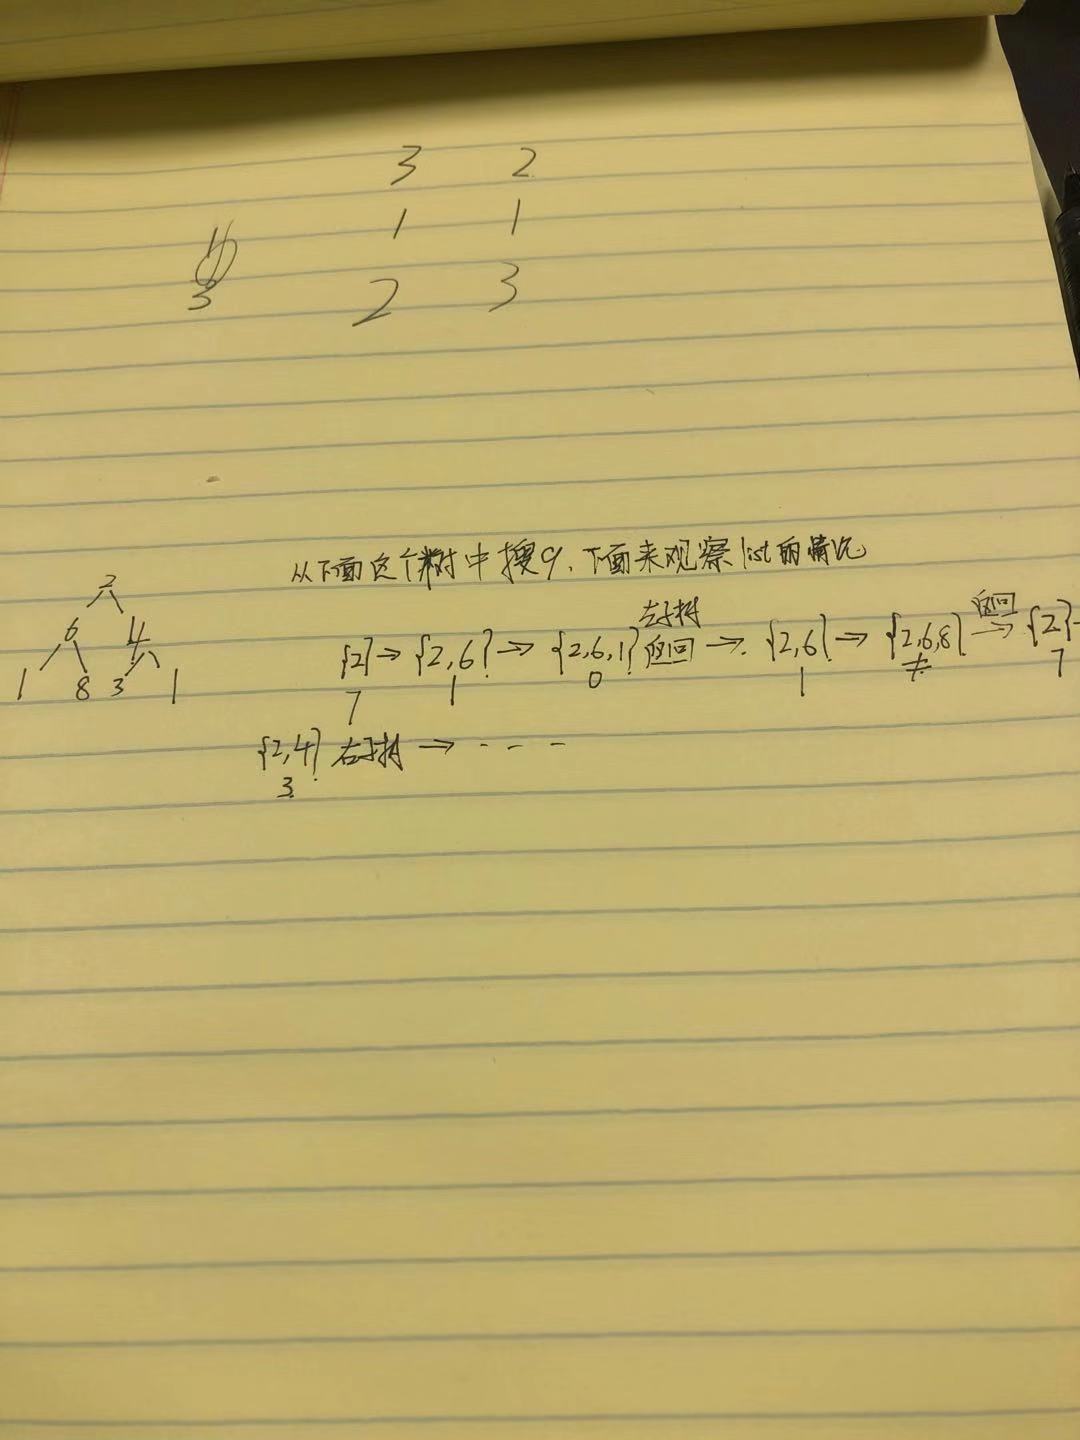 3 2
1 1
3 2 3
从下面这个树中搜9，下面来观察list的情况
2
6 4
1 8 3 1
左子树 返回
{2}→{2,6}→{2,6,1} 返回 → {2,6}→{2,6,8}→{2}-
7 1 0 1 ≠ 7
{2,4} 右子树 → - - -
3